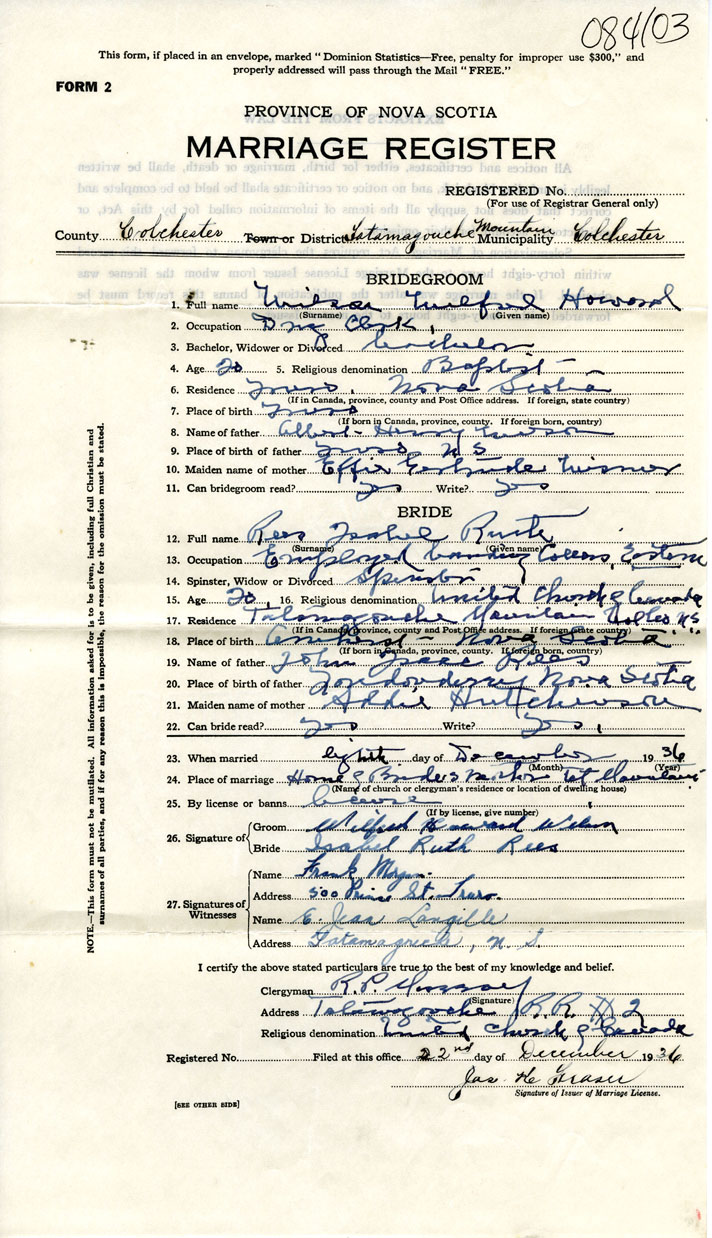 084/03
This form, if placed in an envelope, marked "Dominion Statistics—Free, penalty for improper use $300," and
properly addressed will pass through the Mail "FREE."
FORM 2
PROVINCE OF NOVA SCOTIA
MARRIAGE REGISTER
REGISTERED No.
(For use of Registrar General only)
County Colchester Town or District Tatamagouche Mountain Municipality Colchester
BRIDEGROOM
1. Full name Wilson Wilfred Howard
(Surname) (Given name)
2. Occupation Drug Clerk
3. Bachelor, Widower or Divorced bachelor
4. Age 20 5. Religious denomination Baptist
6. Residence Truro, Nova Scotia
(If in Canada, province, county and Post Office address. If foreign, state country)
7. Place of birth Truro
(If born in Canada, province, county. If foreign born, country)
8. Name of father Albert Henry
9. Place of birth of father Truro N S
10. Maiden name of mother Effie Gertrude
11. Can bridegroom read? yes Write? yes
BRIDE
12. Full name Rees Isabel Ruth
(Surname) (Given name)
13. Occupation Employed
14. Spinster, Widow or Divorced Spinster
15. Age 20, 16. Religious denomination United Church of Canada
17. Residence Tatamagouche Mountain N.S.
(If in Canada, province, county and Post Office address. If foreign, state country)
18. Place of birth Nova Scotia
(If born in Canada, province, county. If foreign born, country)
19. Name of father John Isaac Rees
20. Place of birth of father Londonderry Nova Scotia
21. Maiden name of mother Addie Hutcheson
22. Can bride read? yes Write? yes,
23. When married eighth day of December 1936
(Month) (Year)
24. Place of marriage Home of Bride's
(Name of church or clergyman's residence or location of dwelling house)
25. By license or banns license
(If by license, give number)
26. Signature of
Groom Wilfred Howard Wilson
Bride Isabel Ruth Rees
27. Signatures of Witnesses
Name Frank Morgan.
Address 500 Prince St. Truro.
Name E. Jean Langille
Address Tatamagouche, N. S.
I certify the above stated particulars are true to the best of my knowledge and belief.
Clergyman R. P. Murray
(Signature)
Address Tatamagouche R.R. #2
Religious denomination United Church of Canada
Registered No. Filed at this office 22nd day of December 1936
Jas. H. Fraser
Signature of Issuer of Marriage License.
[SEE OTHER SIDE]
NOTE.—This form must not be mutilated. All information asked for is to be given, including full Christian and
surnames of all parties, and if for any reason this is impossible, the reason for the omission must be stated.